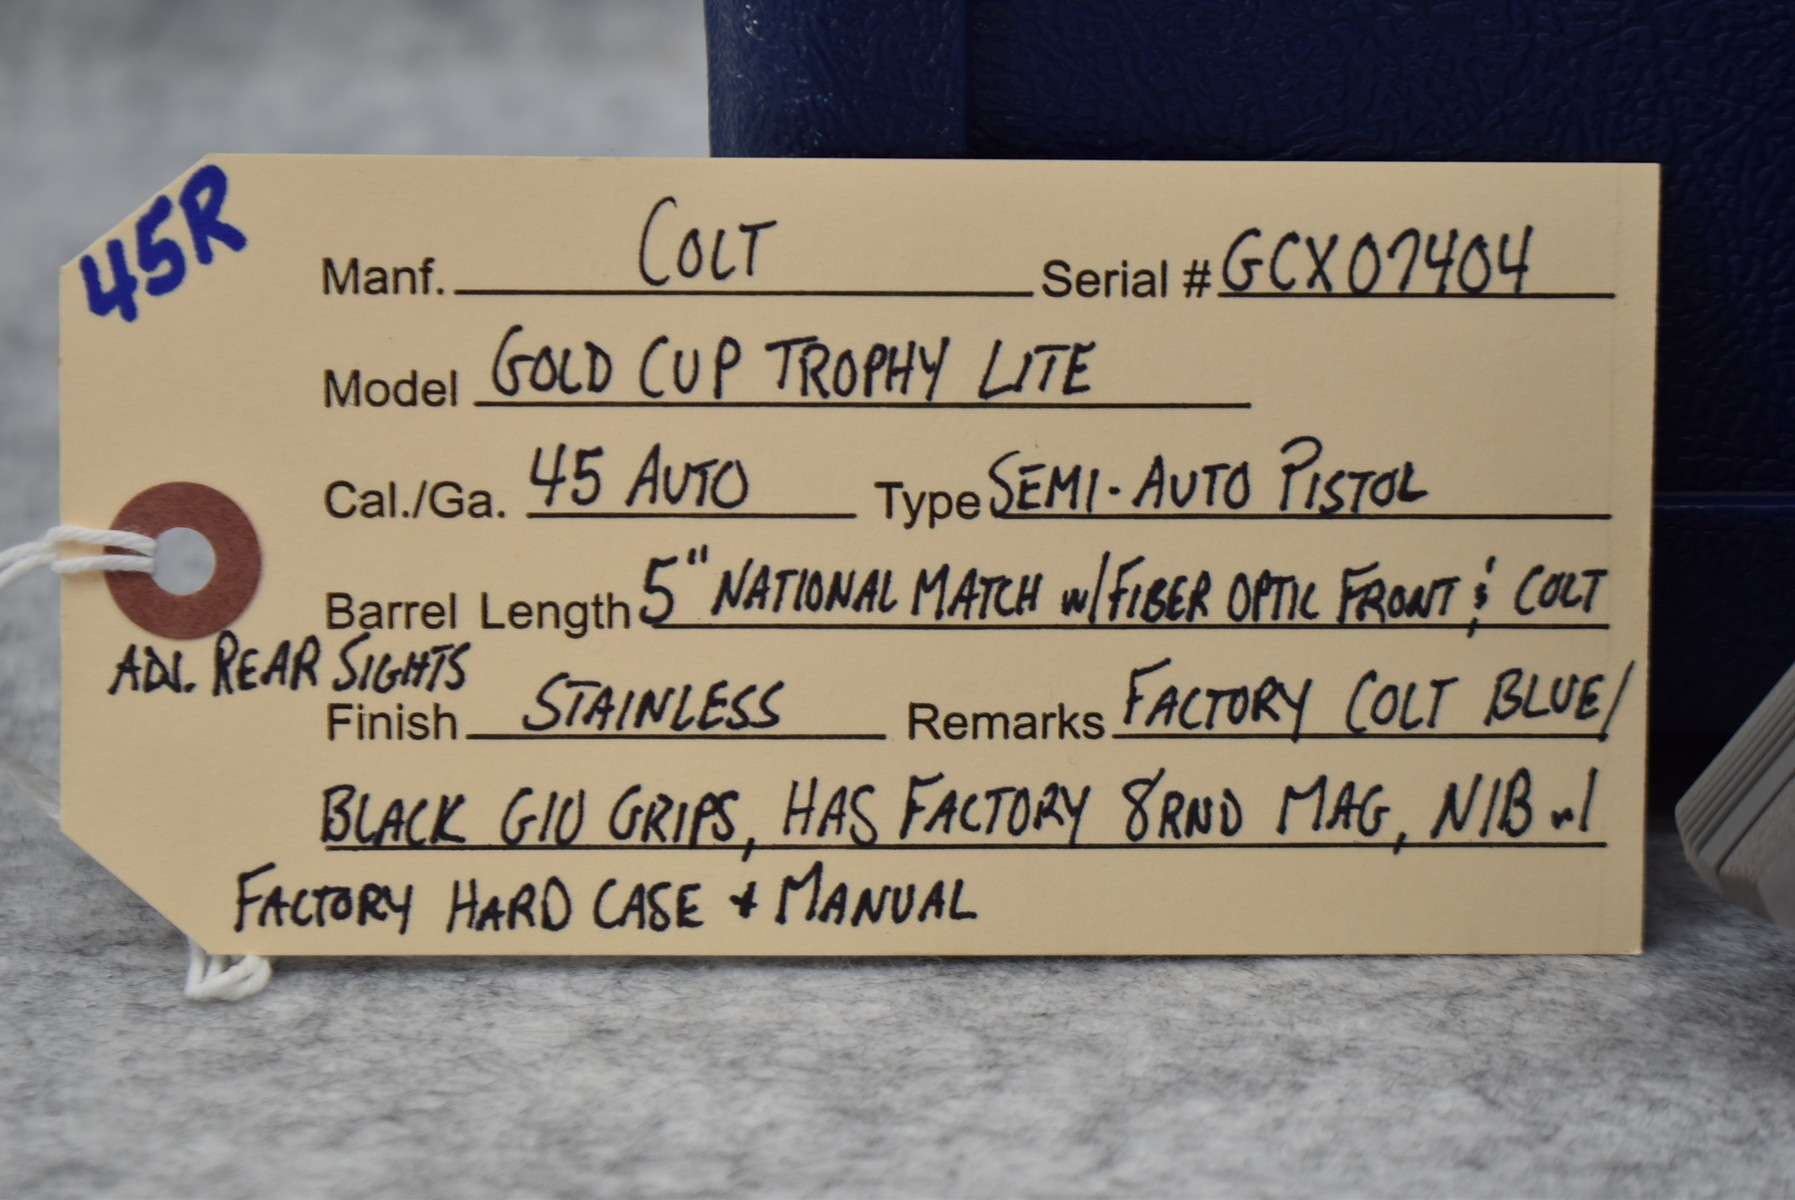 45R
Manf. COLT Serial # GCX07404
Model GOLD CUP TROPHY LITE
Cal./Ga. 45 AUTO Type SEMI-AUTO PISTOL
Barrel Length 5" NATIONAL MATCH w/FIBER OPTIC FRONT & COLT
ADJ. REAR SIGHTS
Finish STAINLESS Remarks FACTORY COLT BLUE/
BLACK G10 GRIPS, HAS FACTORY 8RND MAG, NIB w/
FACTORY HARD CASE & MANUAL